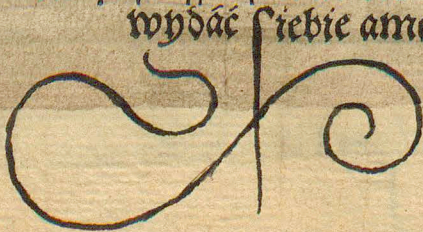 wydáć ſiebie ame